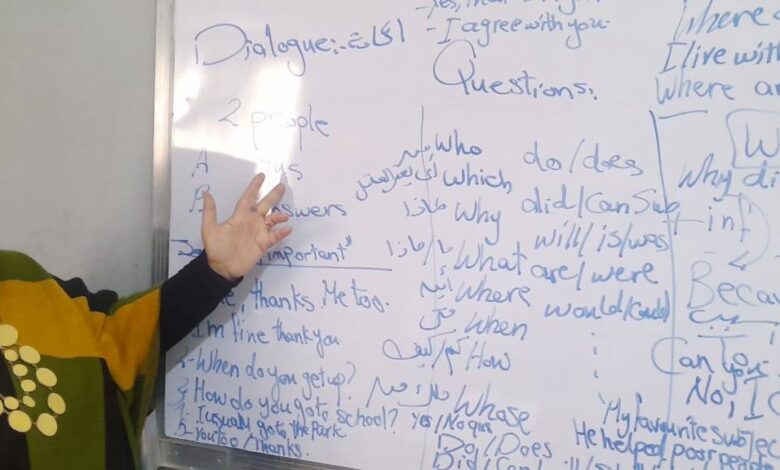 Yes,
- I agree with you.
Dialogue:-
Questions.
2 people
A
B answers
important"
thanks Me too.
I'm fine thank you.
- When do you get up?
3- How do you go to school?
4- I usually go to the Park.
5- You too / Thanks.
Who
which
لماذا Why
ما/ماذا What
أين Where
متى When
كم/كيف How
Whose
Yes/No que
Do/Does
Did/Can
do/does
did/Can Sub + inf
will/is/was
are/were
would/Could
Where
I live with
Where
W
Why di
2
Beca
Can You
No, I C
"My favourite subjec
He helped poor people